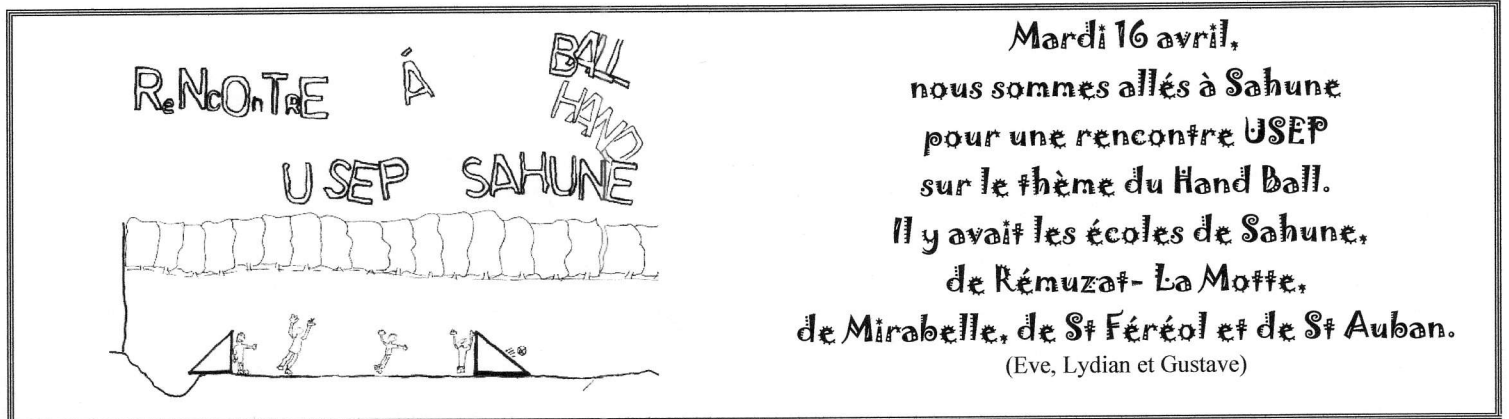 ReNcOnTRE Á
BALL
HAND
USEP SAHUNE
Mardi 16 avril,
nous sommes allés à Sahune
pour une rencontre USEP
sur le thème du Hand Ball.
Il y avait les écoles de Sahune,
de Rémuzat- La Motte,
de Mirabelle, de St Féréol et de St Auban.
(Eve, Lydian et Gustave)